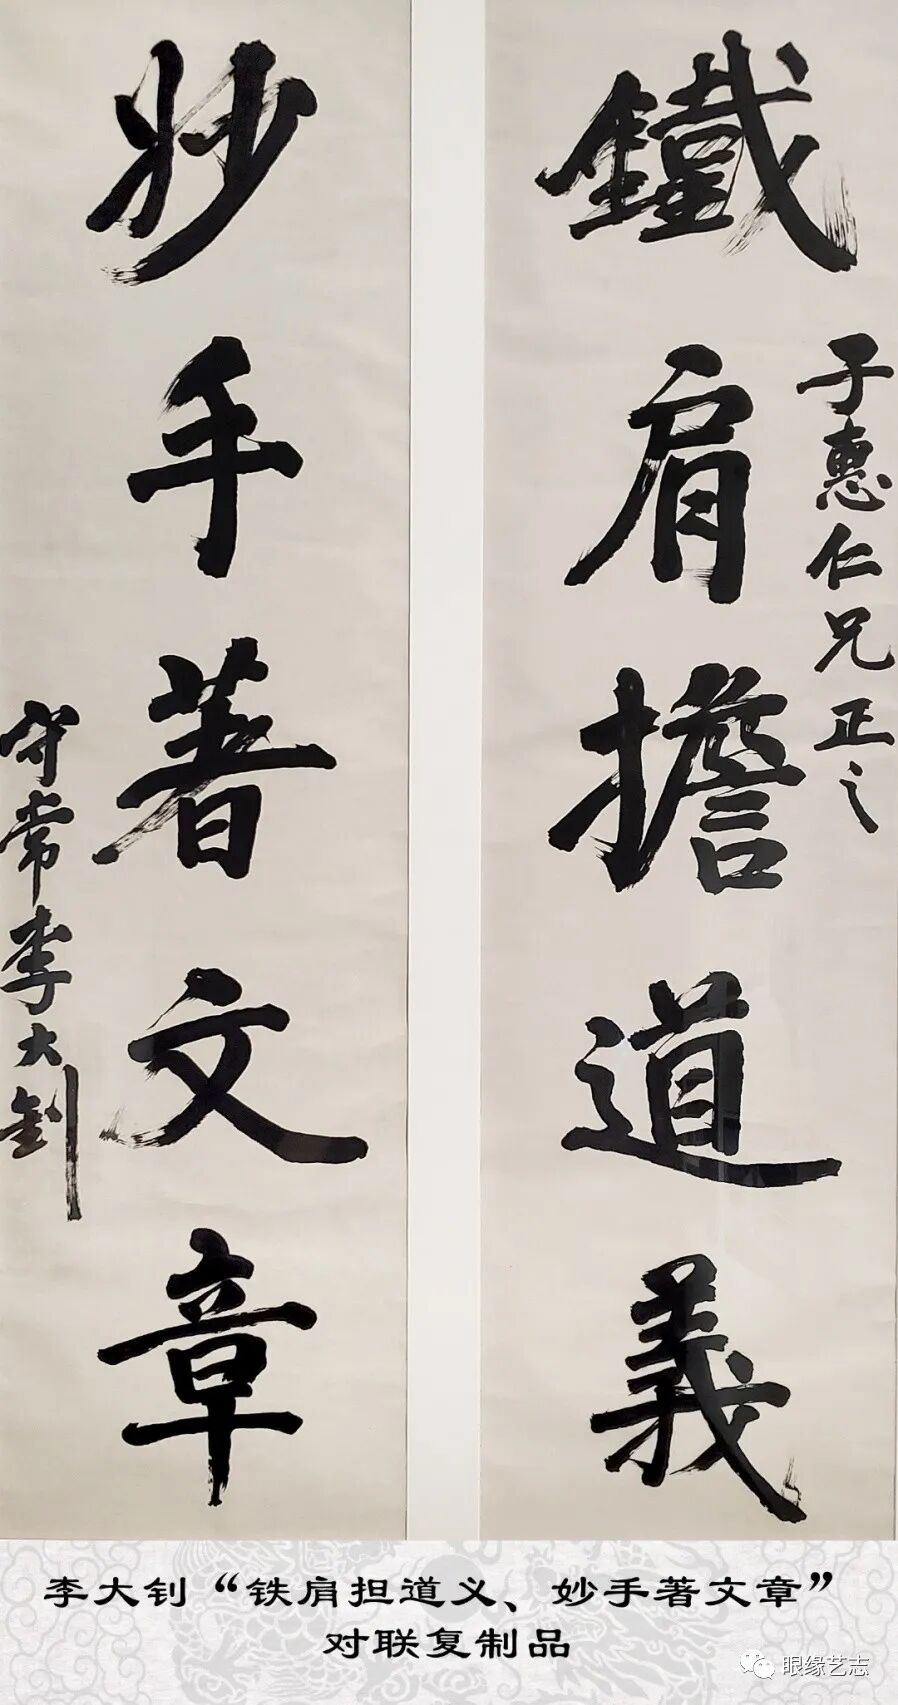 鐵肩擔道義
子惠仁兄正之
妙手著文章
守常李大釗
李大钊“铁肩担道义、妙手著文章”
对联复制品
眼缘艺志